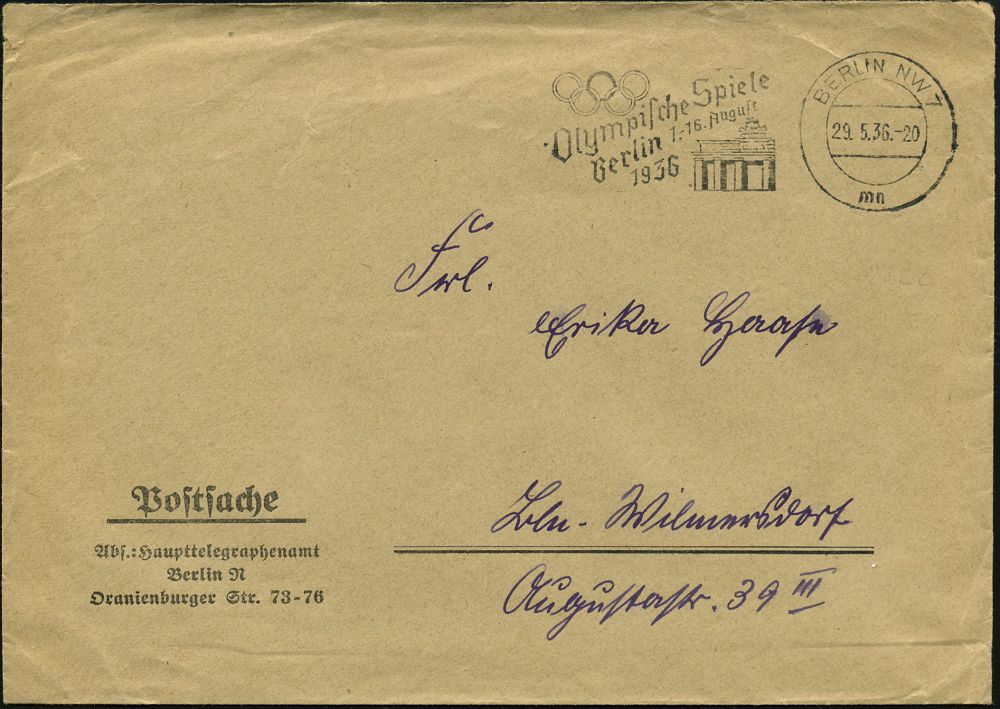 Olympische Spiele
Berlin 1.-16. August
1936
BERLIN NW 7
29.5.36.-20
mn
Frl.
Erika Haase
Bln.-Wilmersdorf
Augustastr. 39 III
Postsache
Abs.: Haupttelegraphenamt
Berlin N
Oranienburger Str. 73-76